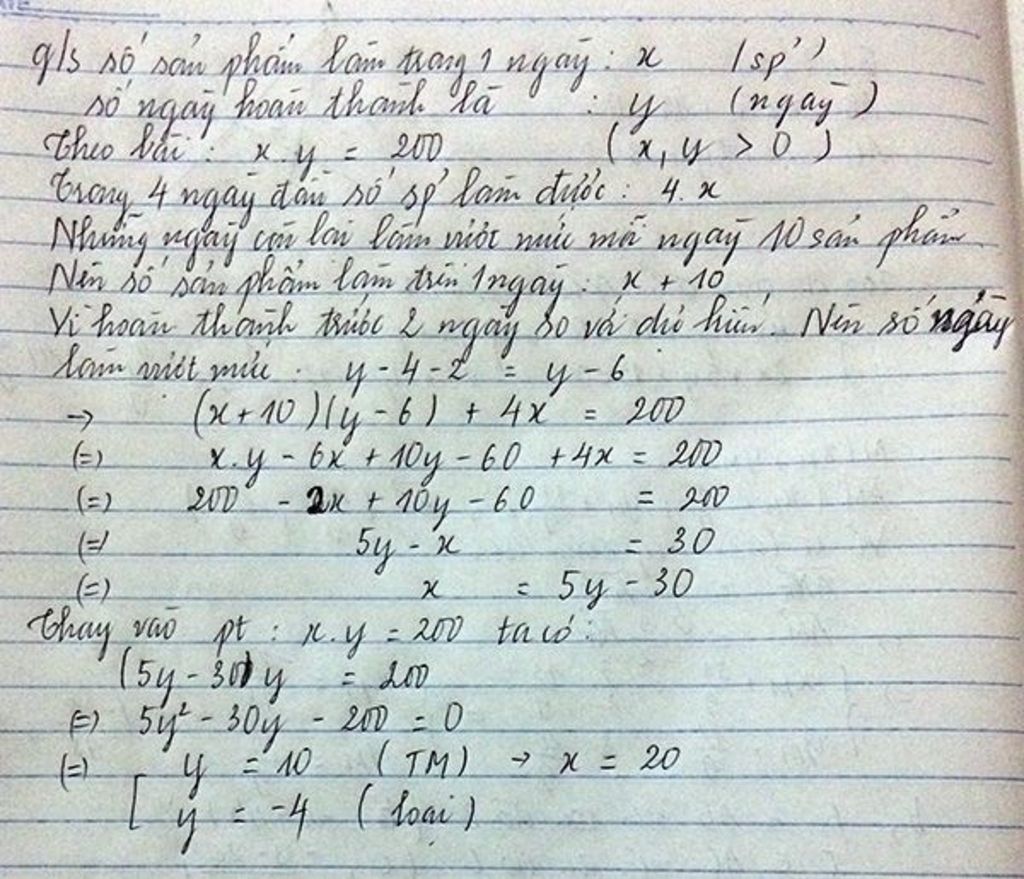 g/s số sản phẩm làm trong 1 ngày : x (sp)
số ngày hoàn thành là : y (ngày)
Theo bài : x.y = 200 (x, y > 0)
Trong 4 ngày đầu số sp làm được : 4.x
Những ngày còn lại làm vượt mức mỗi ngày 10 sản phẩm
Nên số sản phẩm làm trên 1 ngày : x + 10
Vì hoàn thành trước 2 ngày so với dự kiến. Nên số ngày
làm vượt mức : y - 4 - 2 = y - 6
→ (x + 10)(y - 6) + 4x = 200
(=) x.y - 6x + 10y - 60 + 4x = 200
(=) 200 - 2x + 10y - 60 = 200
(=) 5y - x = 30
(=) x = 5y - 30
Thay vào pt : x.y = 200 ta có :
(5y - 30)y = 200
(=) 5y² - 30y - 200 = 0
(=) y = 10 (TM) → x = 20
[ y = -4 (loại)